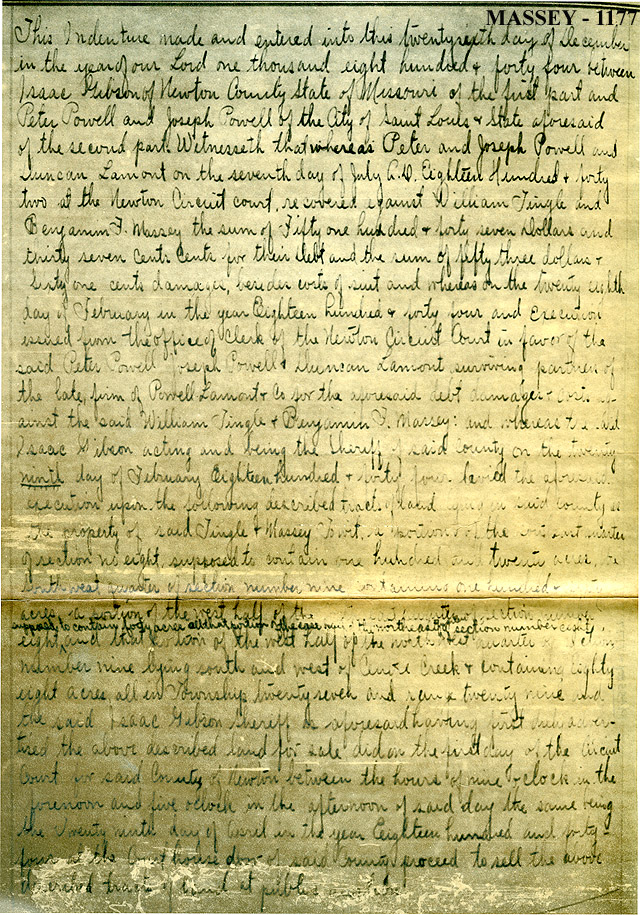 MASSEY - 1177
This Indenture made and entered into this twentysixth day of December
in the year of our Lord one thousand eight hundred & forty four between
Isaac Gibson of Newton County State of Missouri of the first part and
Peter Powell and Joseph Powell of the City of Saint Louis & State aforesaid
of the second part. Witnesseth that whereas Peter and Joseph Powell and
Duncan Lamont on the seventh day of July A.D. Eighteen Hundred & forty
two at the Newton Circuit court, recovered against William Tingle and
Benjamin F. Massey the sum of Fifty one hundred & forty seven Dollars and
thirty seven cents cents for their debt and the sum of fifty three dollars &
sixty one cents damages, besides costs of suit and whereas on the twenty eighth
day of February in the year Eighteen hundred & forty four and Execution
issued from the office of Clerk of the Newton Circuit Court in favor of the
said Peter Powell Joseph Powell & Duncan Lamont surviving partners of
the late firm of Powell Lamont & Co for the aforesaid debt damages & costs
ainst the said William Tingle & Benjamin F. Massey: and whereas the said
Isaac Gibson acting and being the Sheriff of said county on the twenty
ninth day of February Eighteen hundred & forty four levied the aforesaid
execution upon the following described tracts of land lying in said county as
the property of said Tingle & Massey Towit, a portion of the quarter
of section no eight, supposed to contain one hundred and twenty acres,
South west quarter of section number nine containing one hundred
acres, a portion of the west half of the section
supposed to contain forty acres section number
eight, and that portion of the west half of the quarter of
number nine lying south and west of Creek & containing Eighty
eight acres, all in Township twenty seven and range twenty nine and
the said Isaac Gibson Sheriff as aforesaid having first adver-
tised the above described land for sale did on the first day of the Circuit
Court for said County of Newton between the hours of nine oclock in the
forenoon and five oclock in the afternoon of said day the same being
the Twenty ninth day of April in the year Eighteen hundred and forty-
four at the Court house door of said County proceed to sell the above
described tracts of land at public